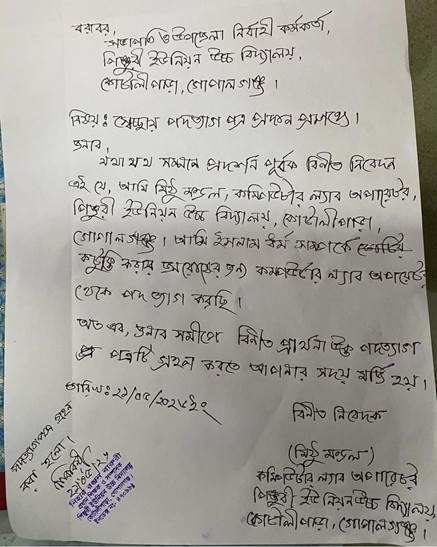 বরাবর,
সভাপতি ও উপজেলা নির্বাহী কর্মকর্তা,
পিঞ্জুরী ইউনিয়ন উচ্চ বিদ্যালয়,
কোটালীপাড়া, গোপালগঞ্জ।
বিষয়ঃ স্বেচ্ছায় পদত্যাগ পত্র প্রদান প্রসঙ্গে।
জনাব,
যথাযথ সম্মান প্রদর্শন পূর্বক বিনীত নিবেদন
এই যে, আমি মিঠু মন্ডল, কম্পিউটার ল্যাব অপারেটর,
পিঞ্জুরী ইউনিয়ন উচ্চ বিদ্যালয়, কোটালীপাড়া,
গোপালগঞ্জ। আমি ইসলাম ধর্ম সম্পর্কে
কটুক্তি করার অপরাধের জন্য কম্পিউটার ল্যাব অপারেটর
থেকে পদত্যাগ করছি।
অতএব, জনাব সমীপে বিনীত প্রার্থনা উক্ত পদত্যাগ
পত্রটি গ্রহন করতে আপনার সদয় মর্জি হয়।
তারিখঃ
বিনীত নিবেদক
(মিঠু মন্ডল)
কম্পিউটার ল্যাব অপারেটর
পিঞ্জুরী ইউনিয়ন উচ্চ বিদ্যালয়
কোটালীপাড়া, গোপালগঞ্জ।
পদত্যাগপত্র গ্রহন
করা হলো।